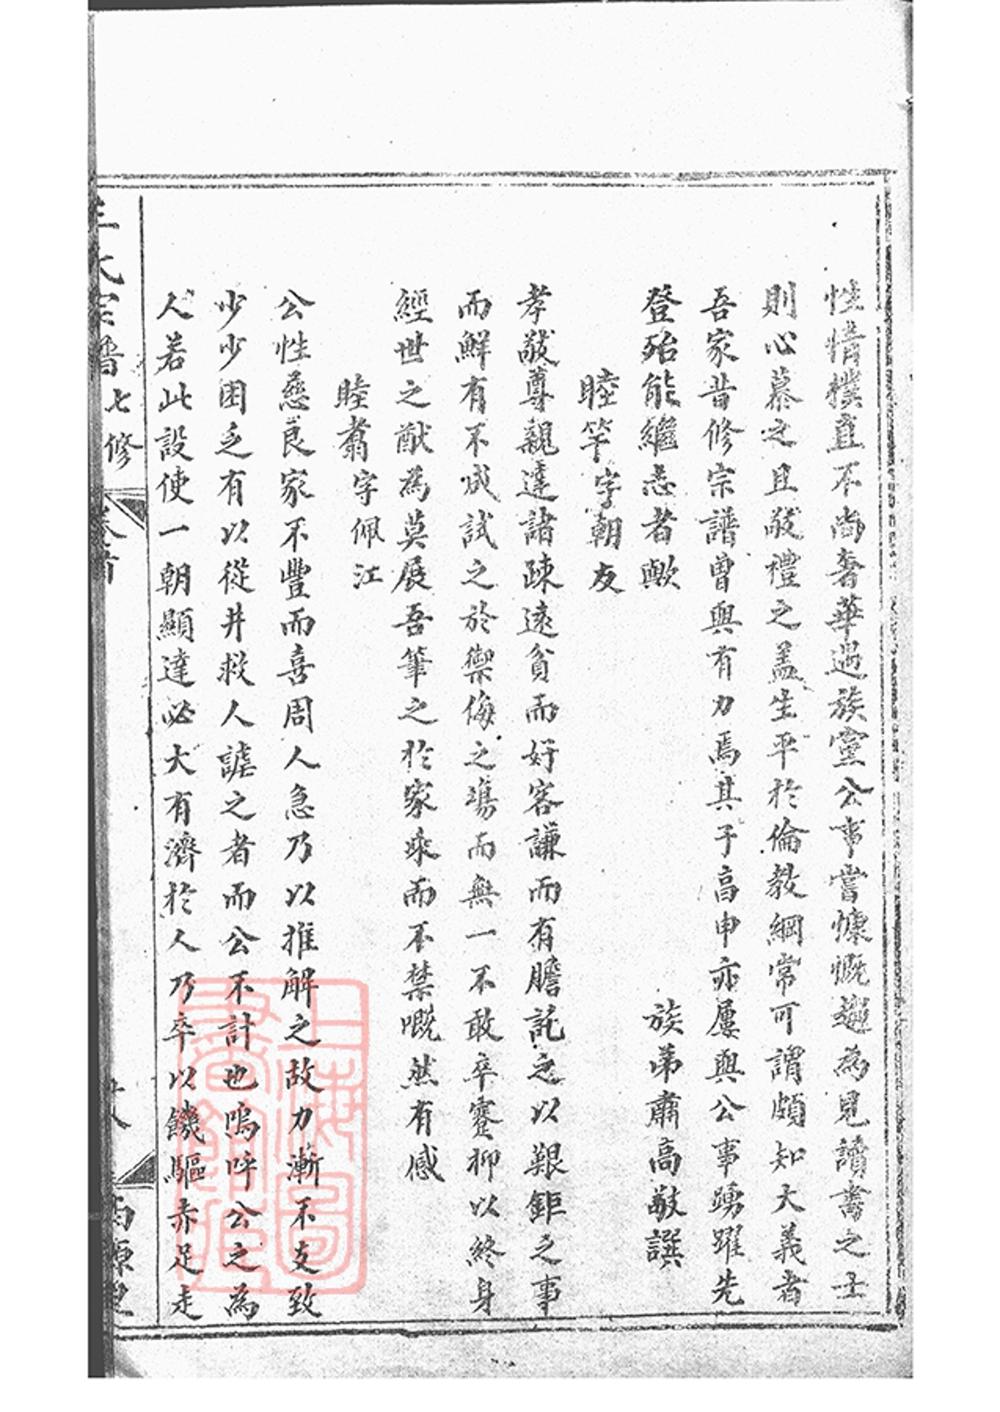 性情樸直不尚奢華遇族黨公事嘗慷慨趨為見讀書之士
則心慕之且敬禮之蓋生平於倫教綱常可謂頗知大義者
吾家昔修宗譜曾與有力焉其子高申亦屢與公事踴躍先
登殆能繼志者歟
族弟肅高敬譔
睦竿字朝友
孝敬尊親達諸疎遠貧而好客謙而有膽託之以艱鉅之事
而鮮有不成試之於禦侮之場而無一不敢卒蹇抑以終身
經世之猷為莫展吾筆之於家乘而不禁嘅然有感
睦肅字佩江
公性慈良家不豐而喜周人急乃以推解之故力漸不支致
少少困乏有以從井救人謔之者而公不計也嗚呼公之為
人若此設使一朝顯達必大有濟於人乃卒以饑驅赤足走
王氏宗譜七修
卷首
上海圖書館藏